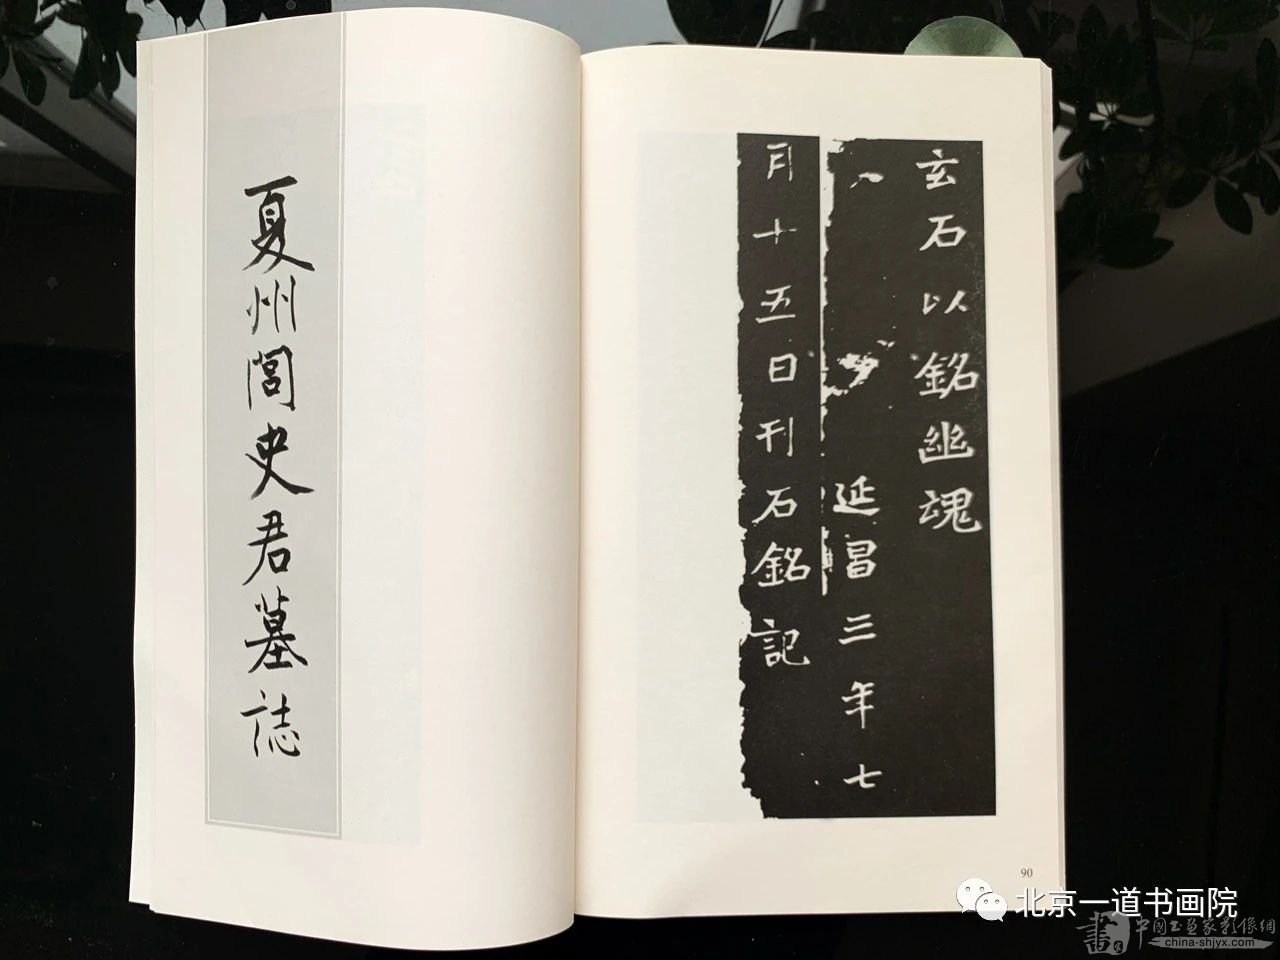 玄石以銘幽魂
延昌三年七
月十五日刊石銘記
夏州閻史君墓誌
90
北京一道书画院
中國書畫家影像網
china-shjyx.com